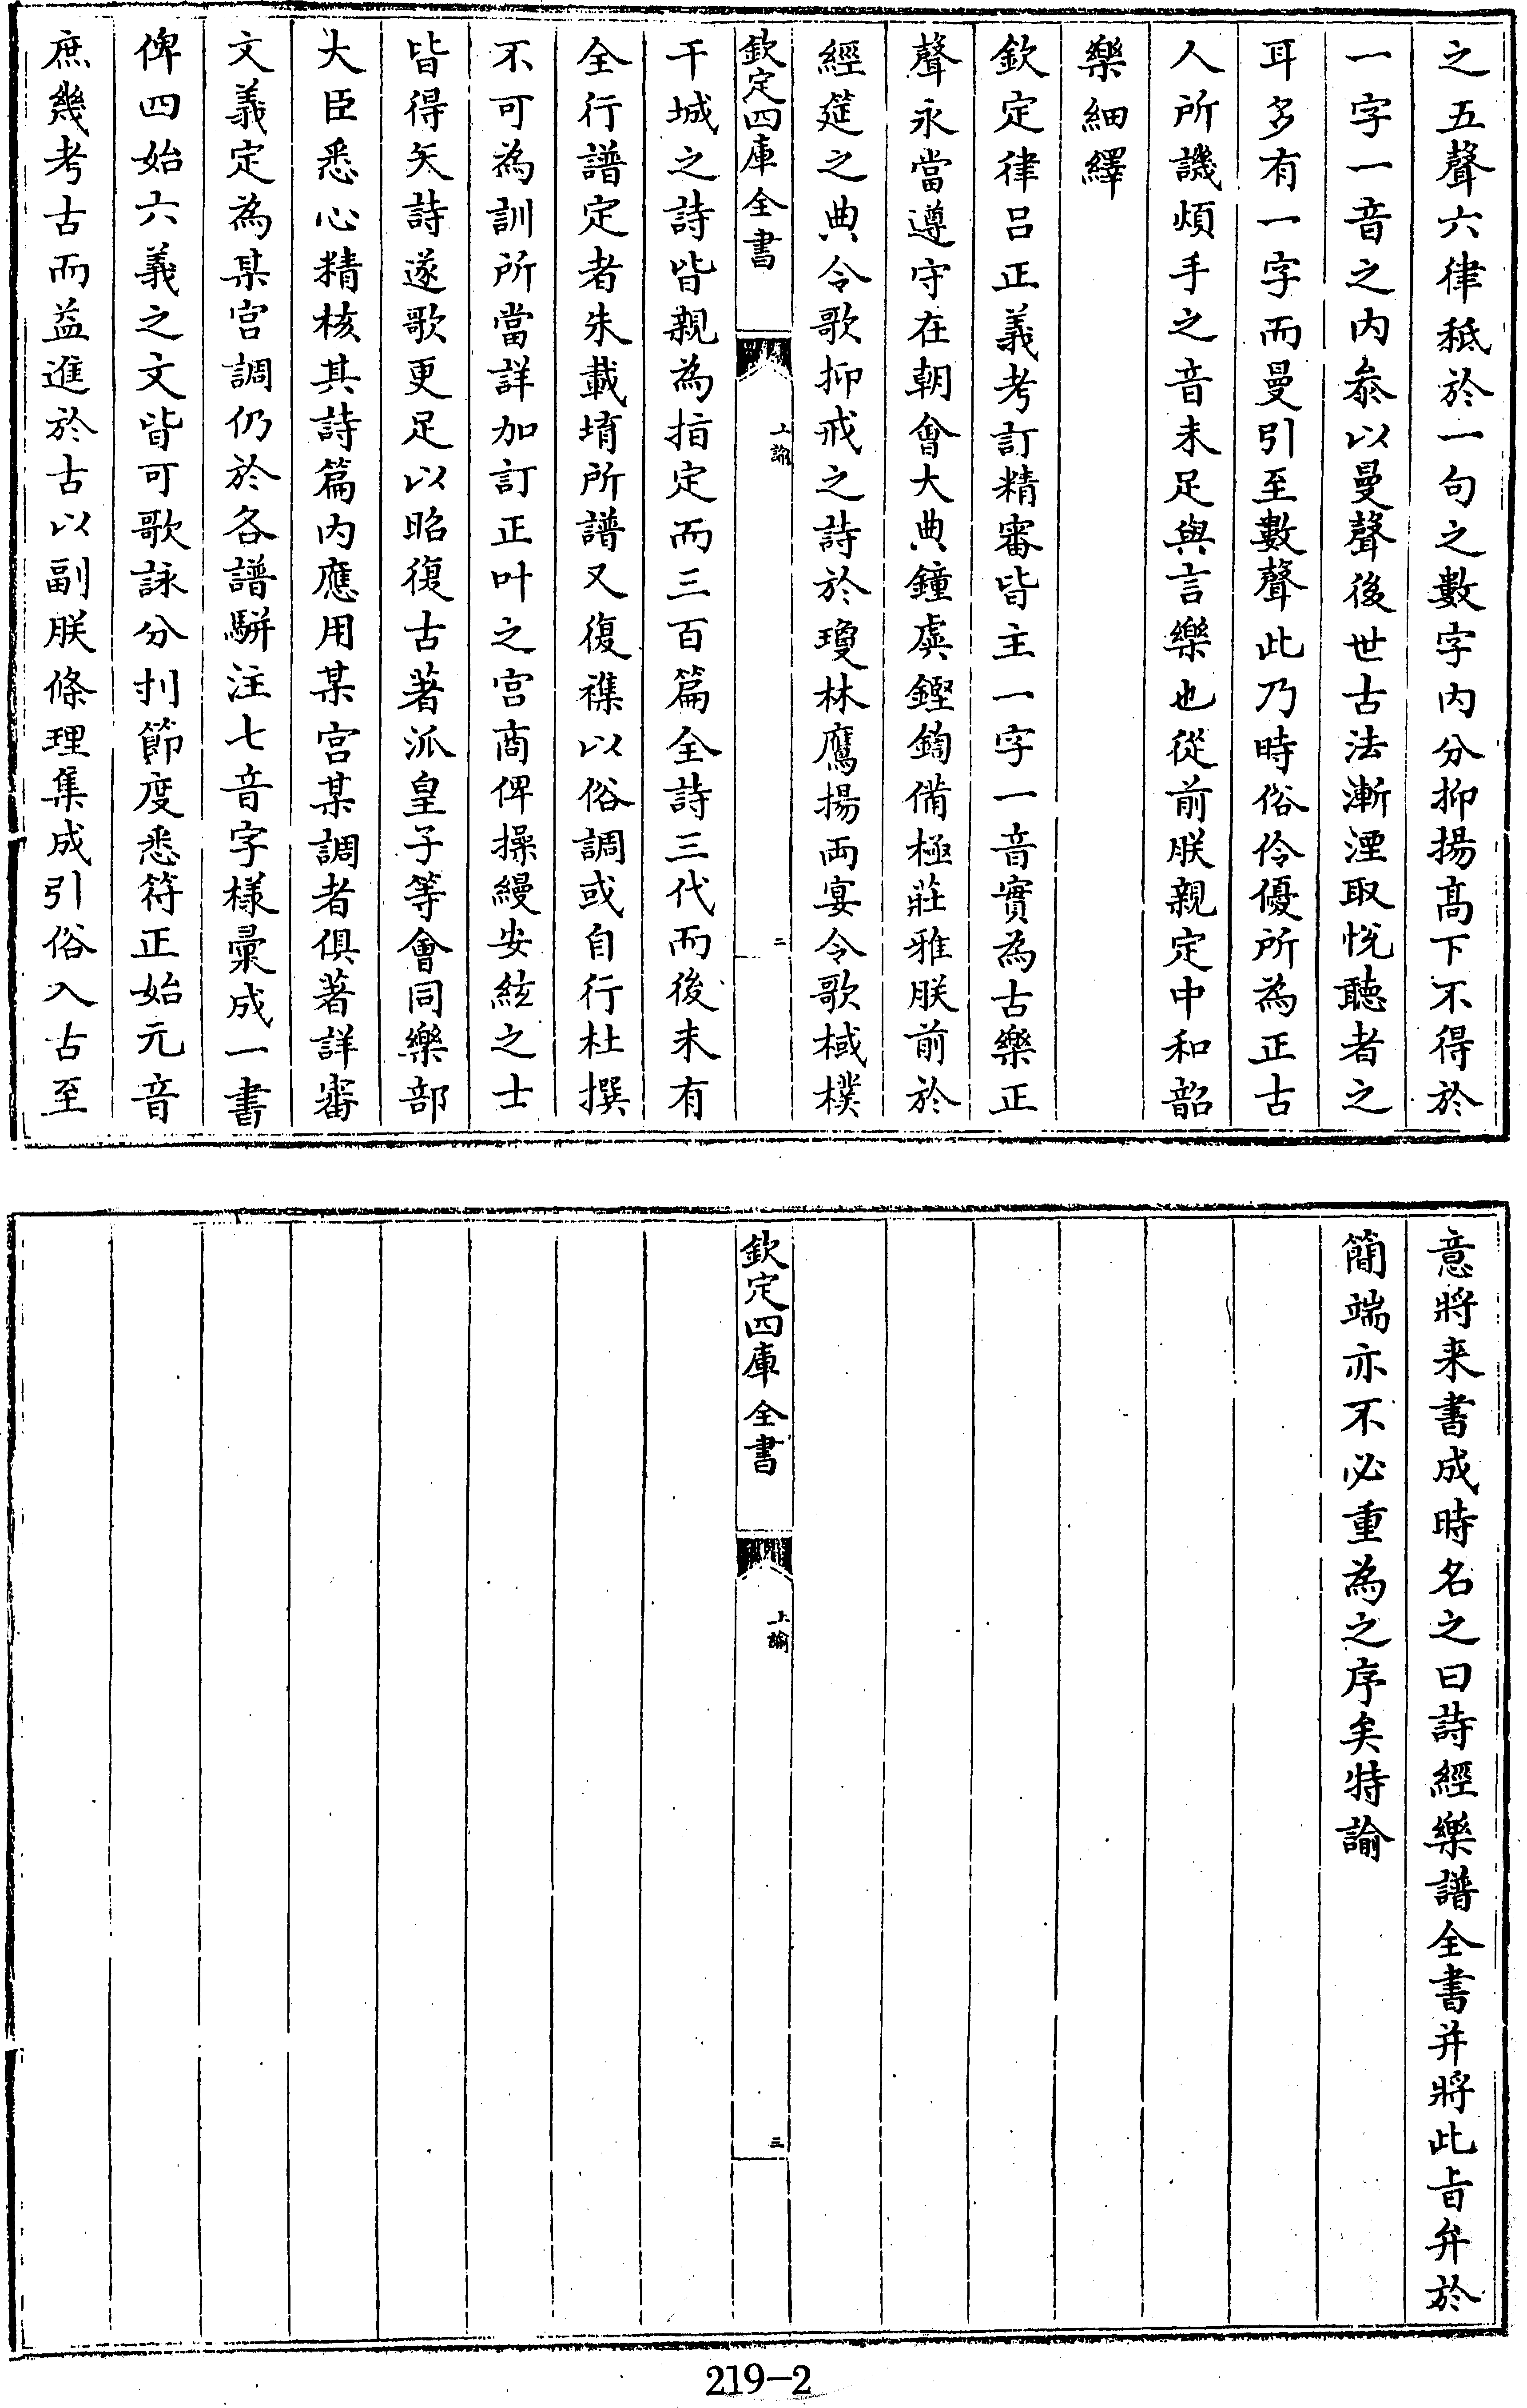 之五聲六律秪於一句之數字内分抑揚髙下不得於
一字一音之内叅以曼聲後世古法漸湮取悦聽者之
耳多有一字而曼引至數聲此乃時俗伶優所為正古
人所譏煩手之音未足與言樂也從前朕親定中和韶
樂細繹
欽定律吕正義考訂精審皆主一字一音實為古樂正
聲永當遵守在朝會大典鐘虡鏗鍧備極莊雅朕前於
經筵之典令歌抑戒之詩於瓊林鷹揚兩宴令歌棫樸
欽定四庫全書
上諭
二
干城之詩皆親為指定而三百篇全詩三代而後未有
全行譜定者朱載堉所譜又復襍以俗調或自行杜撰
不可為訓所當詳加訂正叶之宫商俾操縵安絃之士
皆得矢詩遂歌更足以昭復古著派皇子等會同樂部
大臣悉心精核其詩篇内應用某宫某調者俱著詳審
文義定為某宫調仍於各譜駢注七音字樣彚成一書
俾四始六義之文皆可歌詠分刌節度悉符正始元音
庶幾考古而益進於古以副朕條理集成引俗入古至
意將来書成時名之曰詩經樂譜全書并將此旨弁於
簡端亦不必重為之序矣特諭
欽定四庫全書
上諭
三
219-2